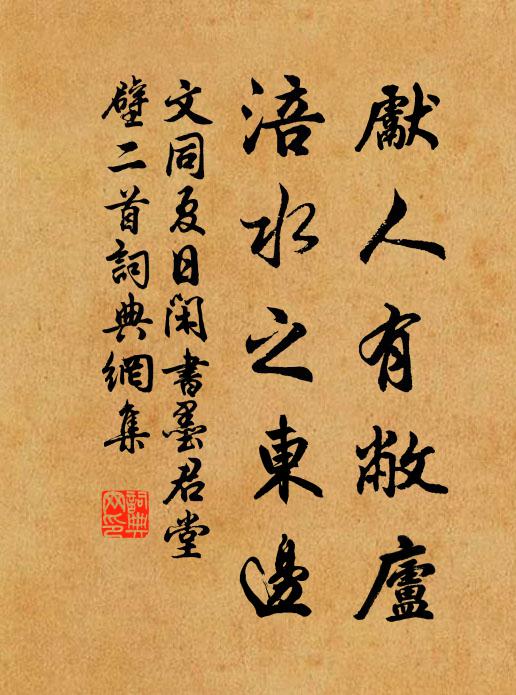 獻人有敝廬
涪水之東邊
文同夏日閑書墨君堂
壁二首詞典網集
詞典
网印